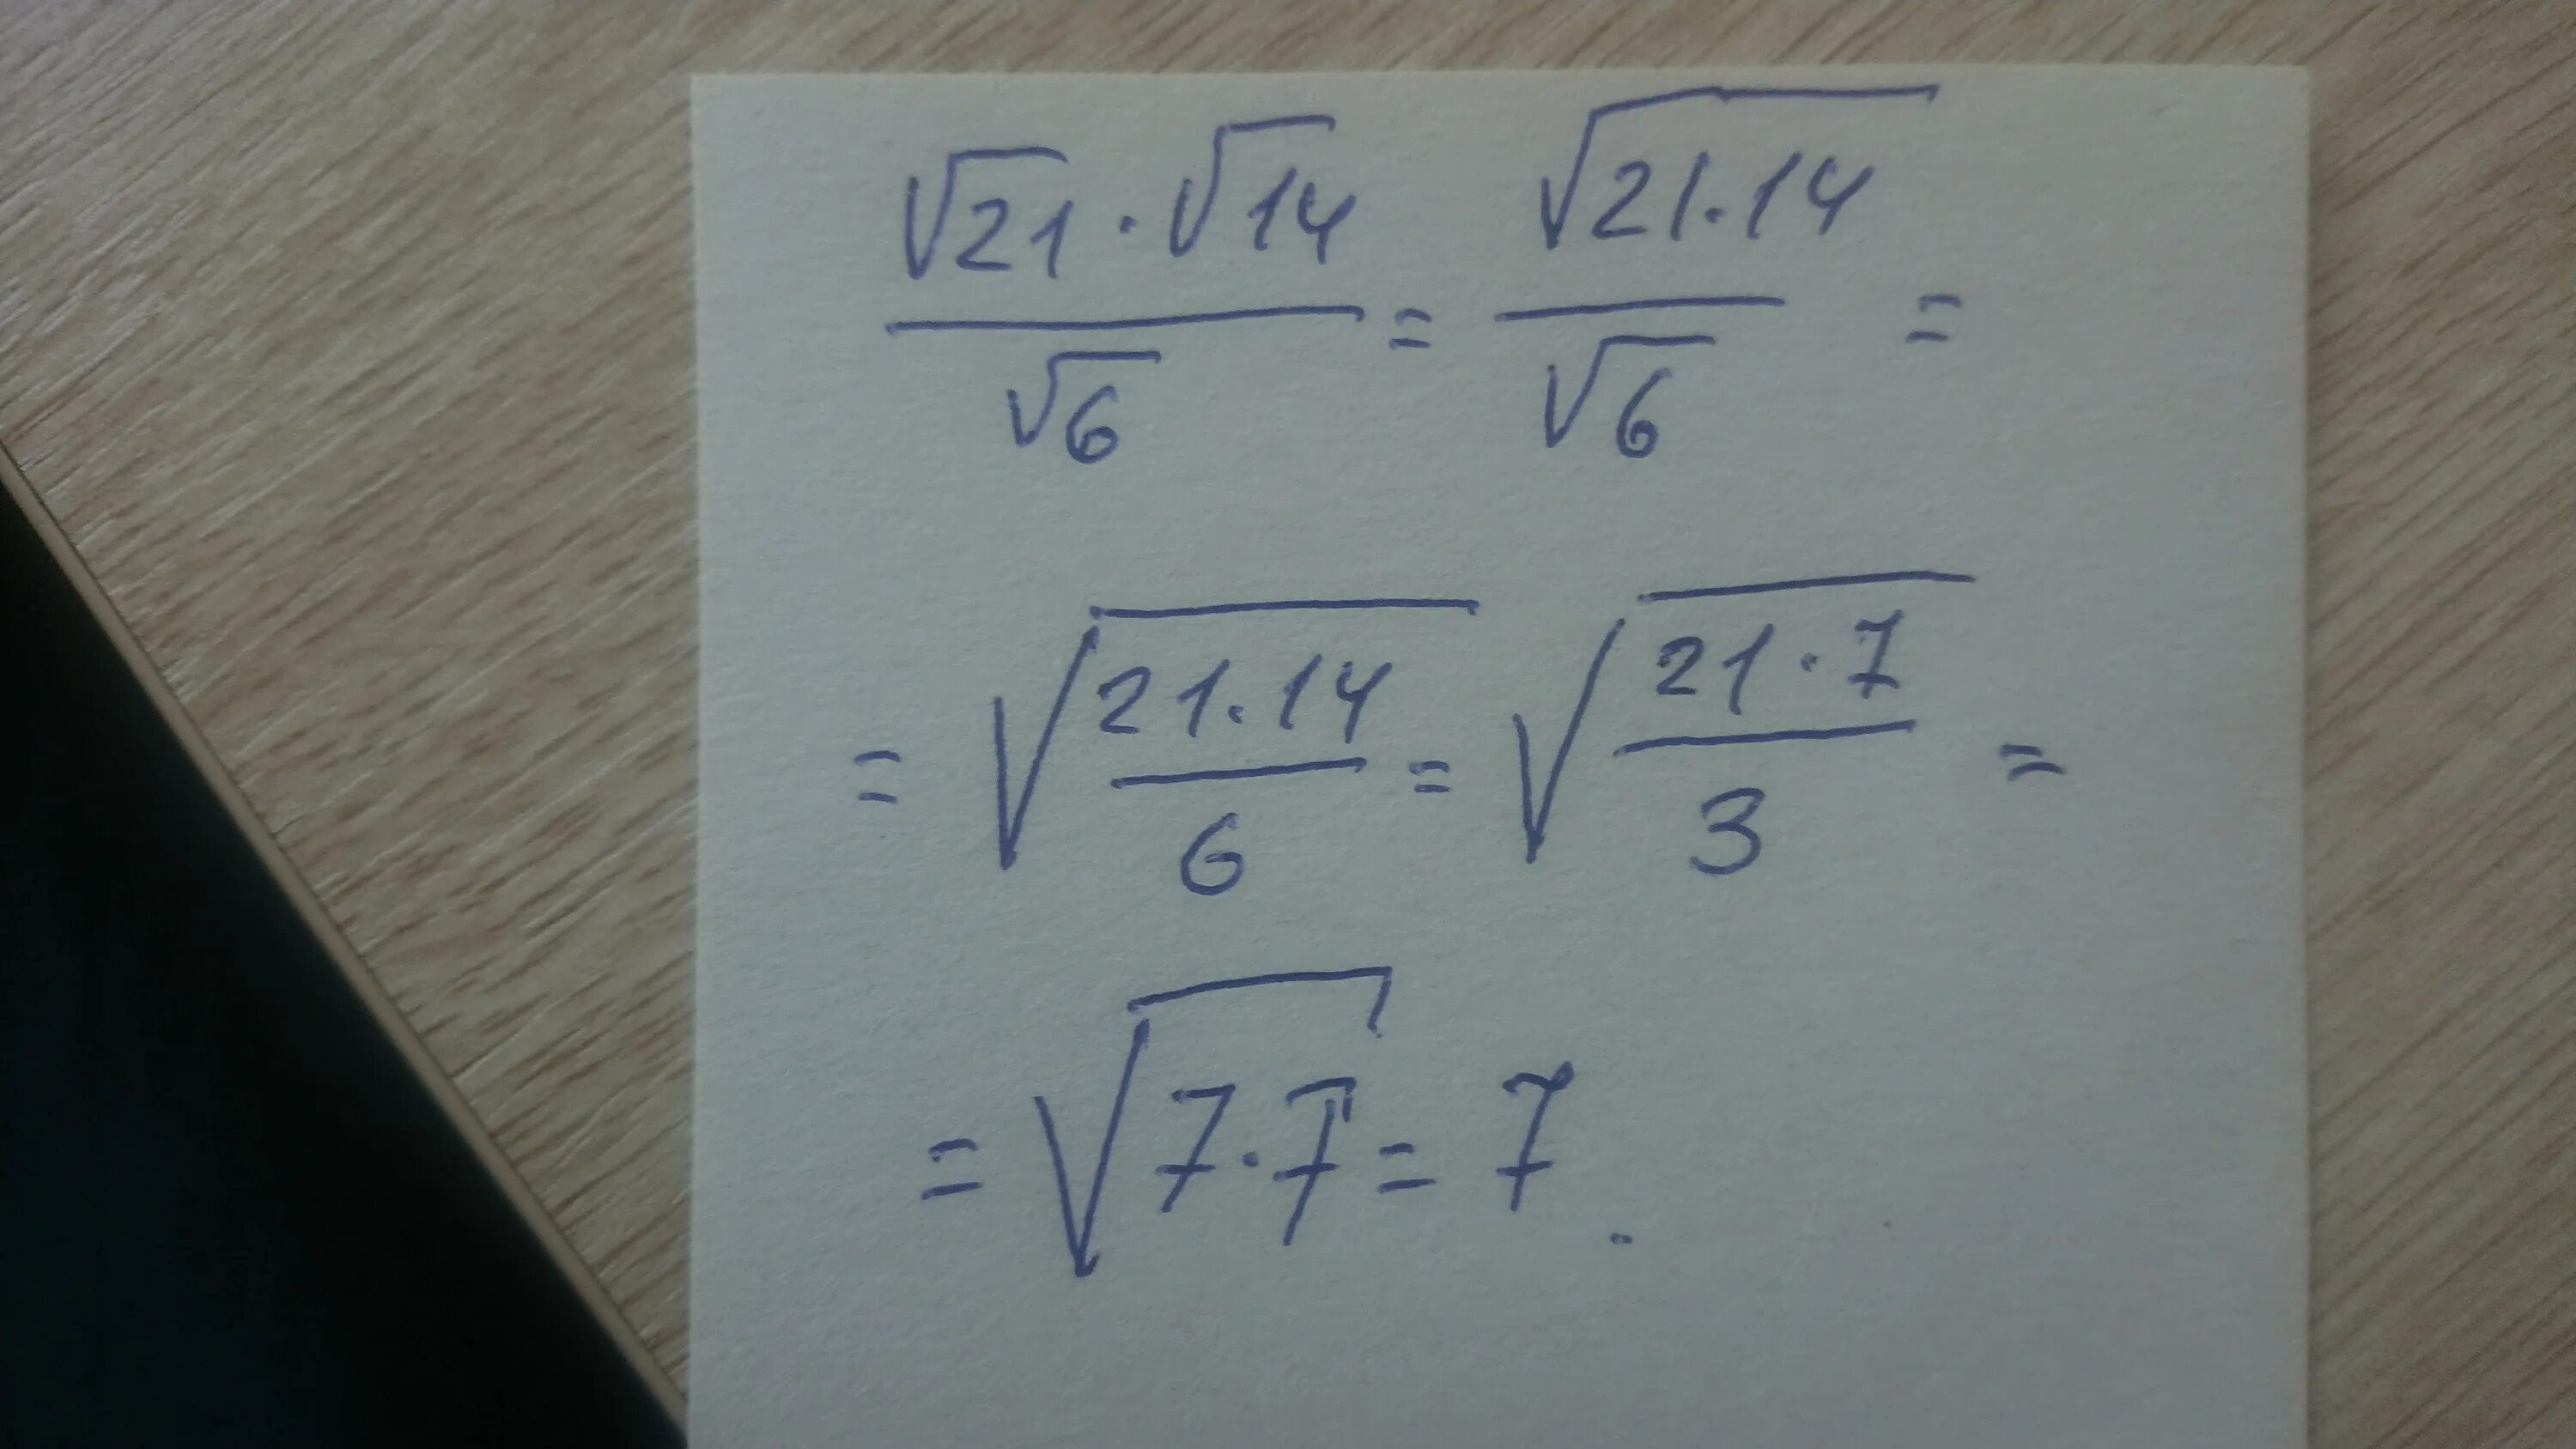 √21 · √14 / √6 = √(21·14) / √6 =
= √(21·14 / 6) = √(21·7 / 3) =
= √(7·7) = 7.